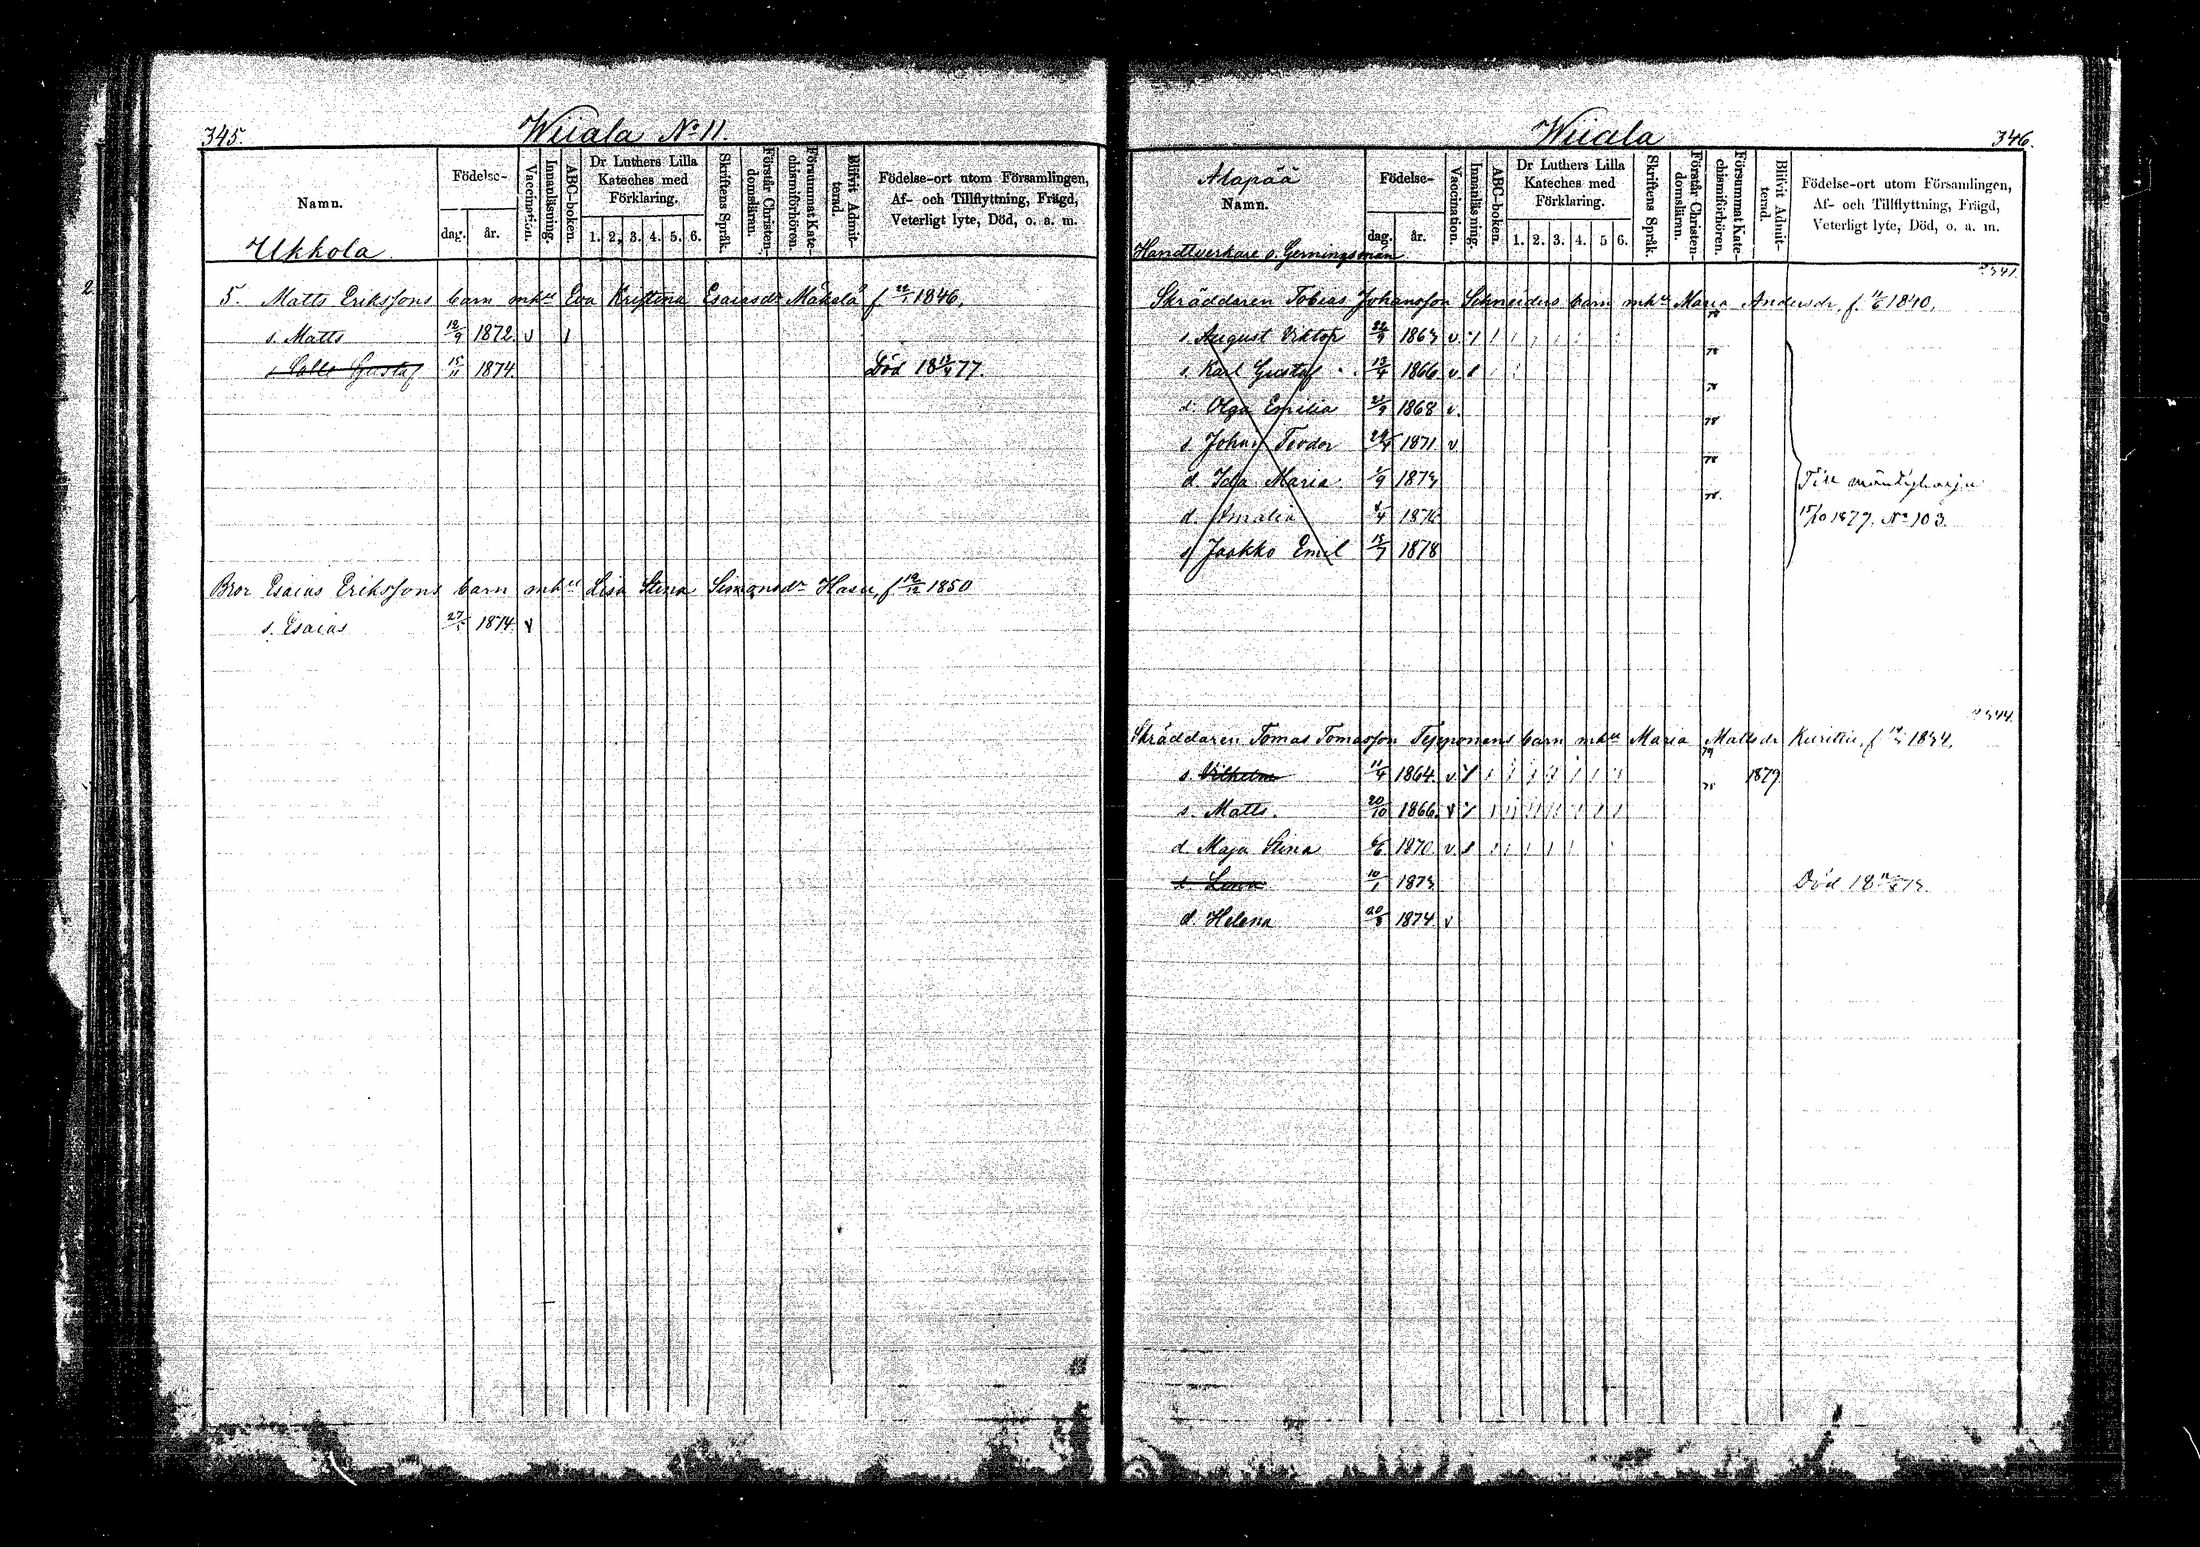 345.
Wiiala No 11.
Namn.
Födelse-
dag.
år.
Vaccination.
Innanläsning.
ABC-boken.
Dr Luthers Lilla
Kateches med
Förklaring.
1. 2. 3. 4. 5. 6.
Skriftens Språk.
Förstår Christen-
domsläran.
Försummat Kate-
chismiförhören.
Blifvit Admit-
terad.
Födelse-ort utom Församlingen,
Af- och Tillflyttning, Frägd,
Veterligt lyte, Död, o. a. m.
Ukkola
5. Matts Erikssons barn mhu Eva Kristina Esaiasdr Mäkelä f 1846,
s. Matts 12/9 1872. v 1
Gustaf 15/11 1874. Död 77.
Bror Esaias Erikssons barn mhu Lisa Stina Simonsdr Hasu, f 19/12 1850
s. Esaias 1874 v
Wiiala
346.
Alapää
Namn.
Födelse-
dag.
år.
Vaccination.
Innanläsning.
ABC-boken.
Dr Luthers Lilla
Kateches med
Förklaring.
1. 2. 3. 4. 5 6.
Skriftens Språk.
Förstår Christen-
domsläran.
Försummat Kate-
chismiförhören.
Blifvit Admit-
terad.
Födelse-ort utom Församlingen,
Af- och Tillflyttning, Frägd,
Veterligt lyte, Död, o. a. m.
Handtverkare o. Gerningsmän
341.
Skräddaren Tobias Johansson Schneiders barn mhu Maria Andersdr, f. 1840,
s. August Viktor 1863 v 78
s. Karl Gustaf 13/4 1866 v 78
d. Olga Emilia 1868 v. 78
s. Johan Teodor 1871 v 78
d. Ida Maria 1873 78
d. Amalia 1876 78.
s. Jaakko Emil 1878
Till Mäntyharju
15/10 1879. No 103.
344.
Skräddaren Tomas Tomasson Tepponens barn mhu Maria Mattsdr Kurittu, f 1834,
s. Vilhelm 11/4 1864. v 79 1879
s. Matts. 20/10 1866. v 78
d. Maja Stina 1870 v
d. Leena 10/1 1873 Död 18 73.
d. Helena 1874 v